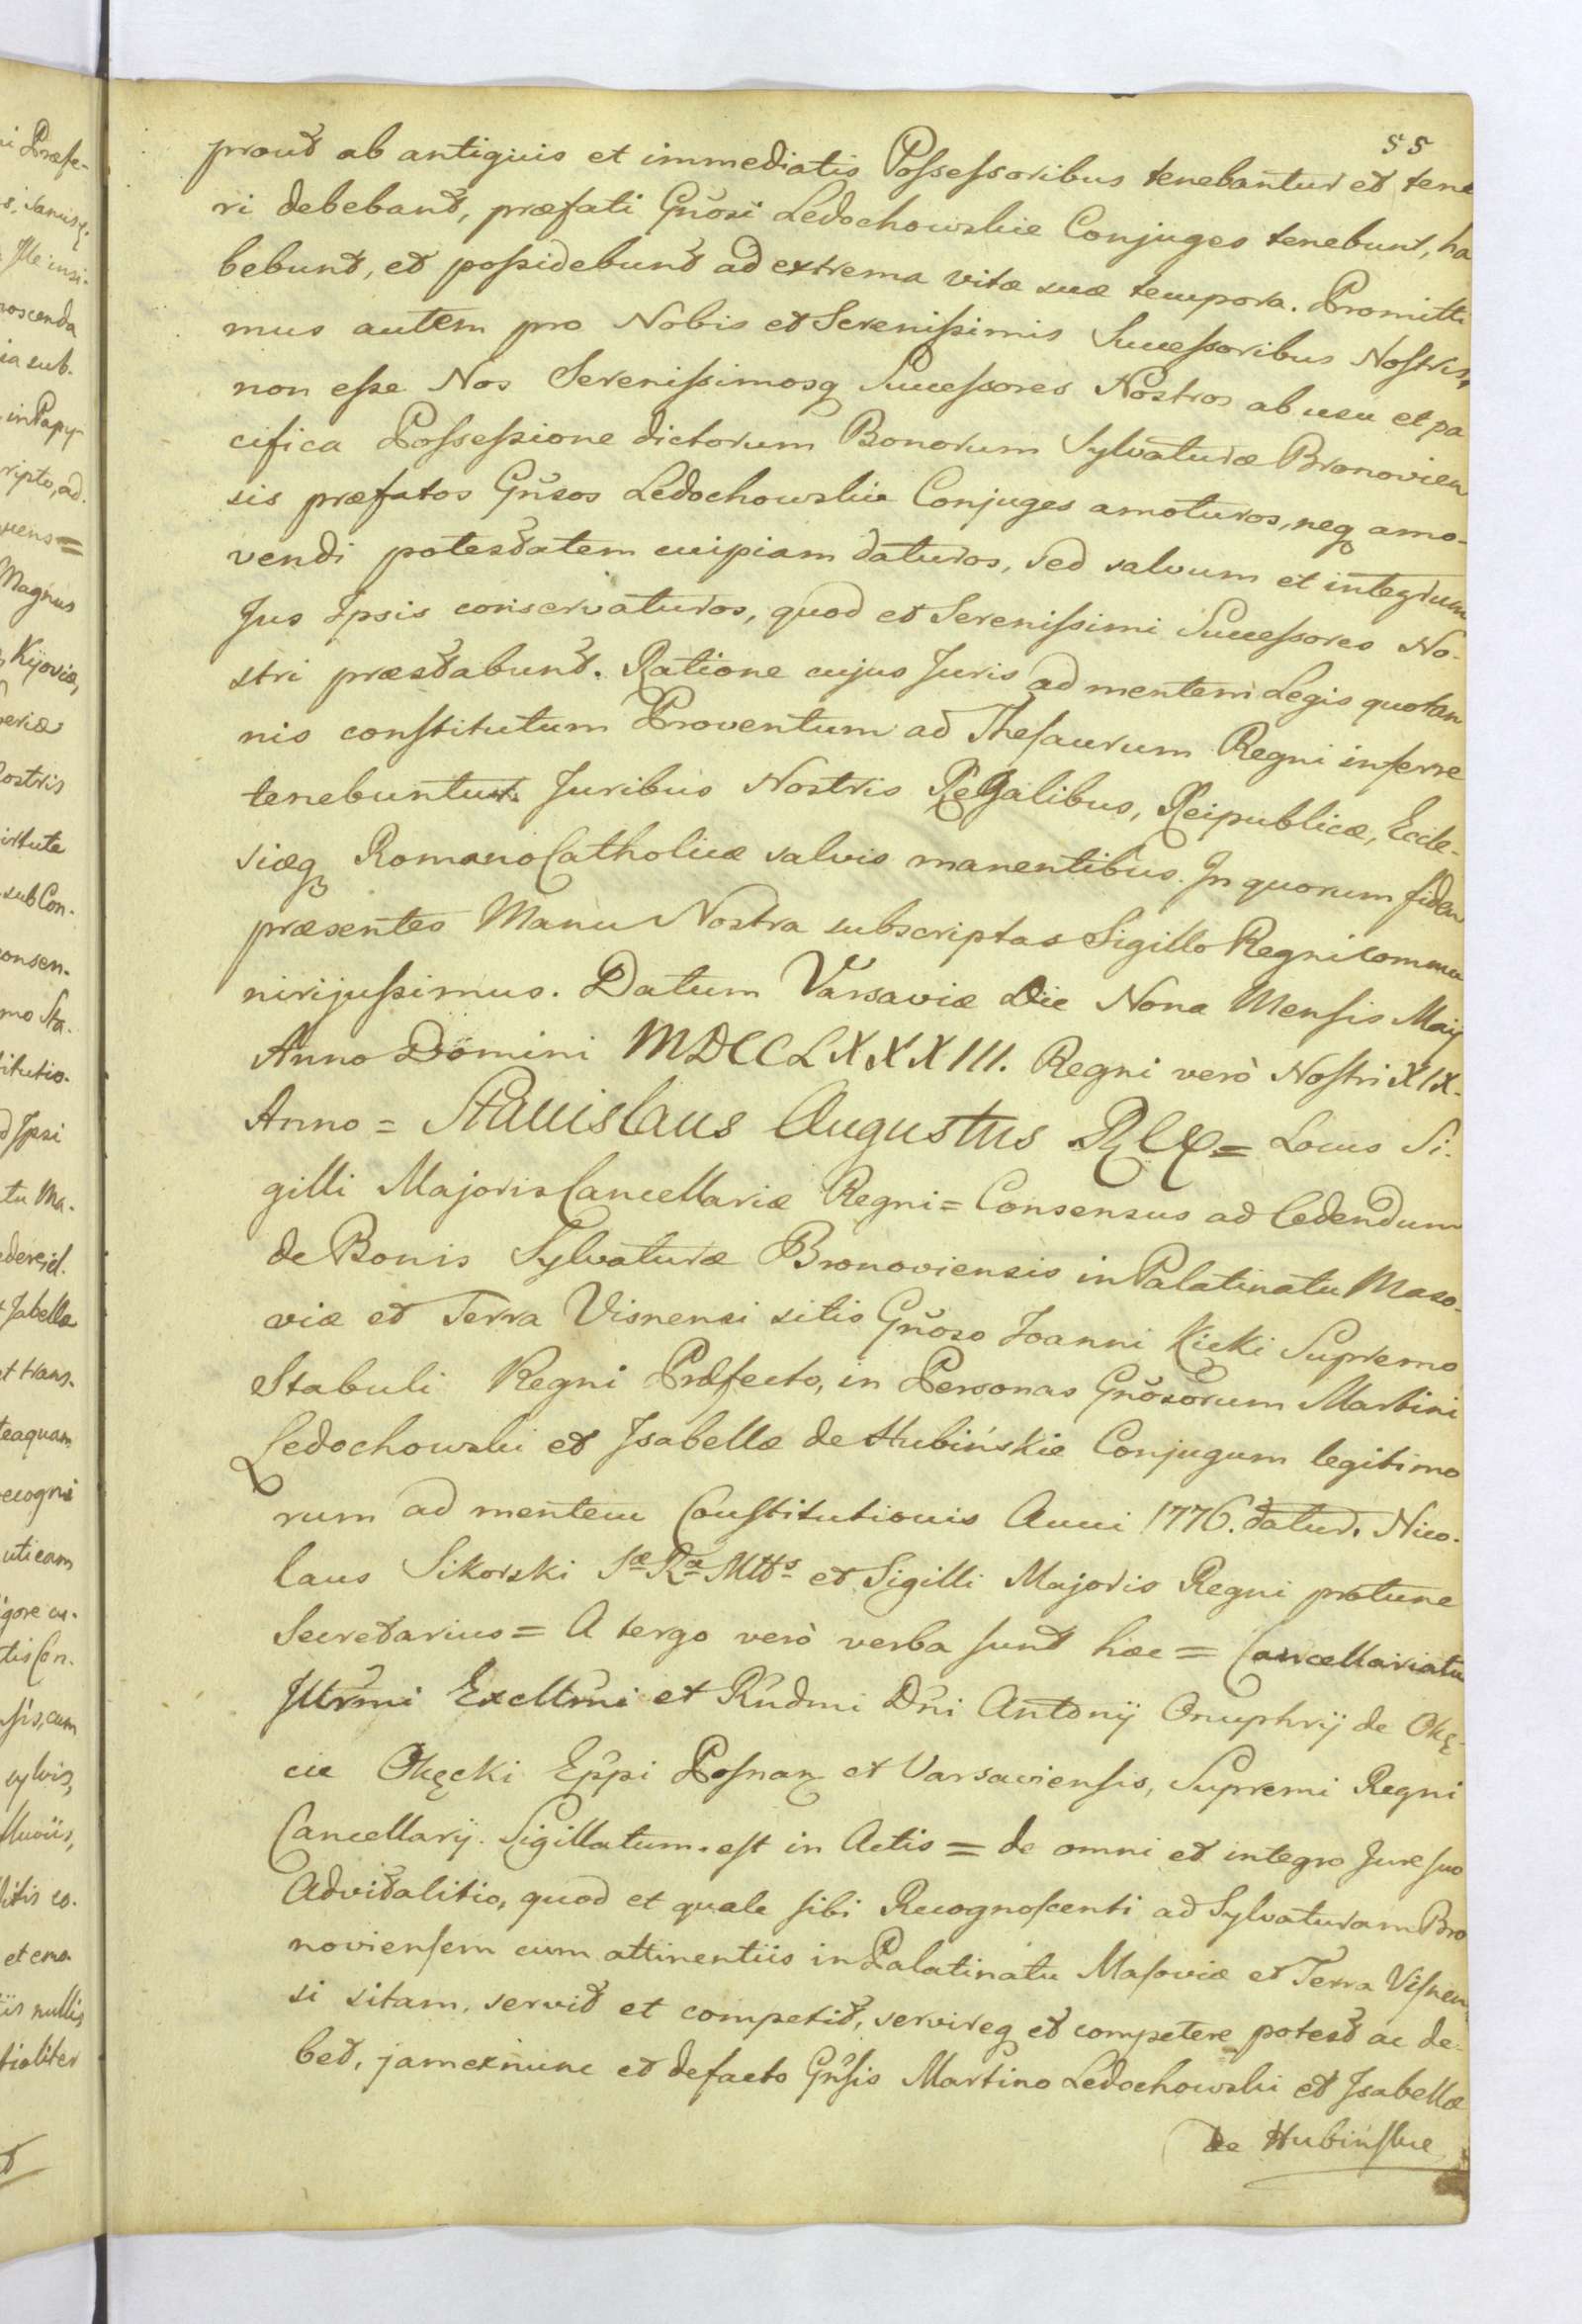 55
prout ab antiquis et immediatis Possessoribus tenebantur et tene
ri debebant, præfati Gñosi Ledochowskie Conjuges tenebunt, ha
bebunt, et possidebunt ad extrema vitæ suæ tempora. Promitti
mus autem pro Nobis et Serenissimis Successoribus Nostris,
non esse Nos Serenissimosq Successores Nostros ab usu et pa
cifica Possessione dictorum Bonorum Sylvaturæ Bronovien
sis præfatos Gñsos Ledochowskie Conjuges amoturos, neq amo-
vendi potestatem cuipiam daturos, sed salvum et integrum
Jus Ipsis conservaturos, quod et Serenissimi Successores No-
stri præstabunt. Ratione cujus Juris ad mentem Legis quotan
nis constitutum Proventum ad Thesaurum Regni inferre
tenebuntur. Juribus Nostris Regalibus, Reipublicæ, Eccle-
siæq Romano Catholicæ salvis manentibus. In quorum fidem
præsentes Manu Nostra subscriptas Sigillo Regni commu
niri jussimus. Datum Varsaviæ Die Nona Mensis Maij
Anno Domini MDCCLXXXIII. Regni verò Nostri XIX.
Anno = Stanislaus Augustus Rex = Locus Si-
gilli Majoris Cancellariæ Regni = Consensus ad Cedendum
de Bonis Sylvaturæ Bronoviensis in Palatinatu Maso-
viæ et Terra Visnensi sitis Gñoso Joanni Kicki Supremo
Stabuli Regni Præfecto, in Personas Gñosorum Martini
Ledochowski et Isabellæ de Hubińskie Conjugum legitimo
rum ad mentem Constitutionis Anni 1776. datur. Nico-
laus Sikorski Sæ Ræ Mtts et Sigilli Majoris Regni protunc
Secretarius = A tergo verò verba sunt hæc = Cancellariatu
Illrmi Excllmi et Rndmi Dni Antonij Onuphrij de Okę-
cie Okęcki Eppi Posnan et Varsaviensis, Supremi Regni
Cancellarij. Sigillatum est in Actis = de omni et integro Jure suo
Advitalitio, quod et quale sibi Recognoscenti ad Sylvaturam Bro
noviensem cum attinentiis in Palatinatu Masoviæ et Terra Visnen
si sitam, servit et competit, servireq et competere potest ac de-
bet, jam ex nunc et de facto Gñsis Martino Ledochowski et Isabellæ
de Hubińskie